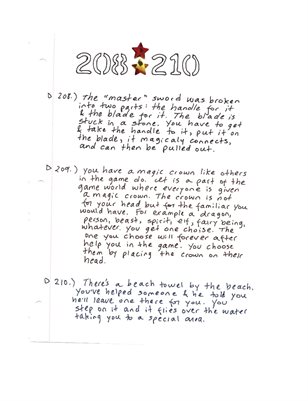 208 210
D 208.) The "master" sword was broken
into two parts: the handle for it
& the blade for it. The blade is
stuck in a stone. You have to get
& take the handle to it, put it on
the blade, it magicaly connects,
and can then be pulled out.
D 209.) you have a magic crown like others
in the game do. It is a part of the
game world where everyone is given
a magic crown. The crown is not
for your head but for the familiar you
would have. For example a dragon,
person, beast, spirit, elf, fairy being,
whatever. you get one choise. The
one you choose will forever after
help you in the game. You choose
them by placing the crown on their
head.
D 210.) There's a beach towel by the beach.
You've helped someone & he told you
he'll leave one there for you. You
step on it and it flies over the water
taking you to a special area.